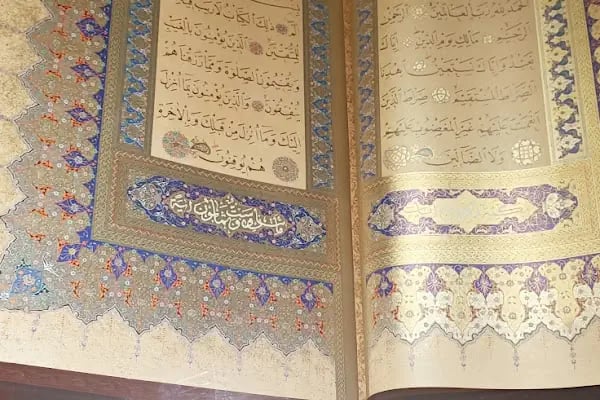 الحمد لله رب العالمين الرحمن
الرحيم مالك يوم الدين إياك
نعبد وإياك نستعين اهدنا
الصراط المستقيم صراط الذين
أنعمت عليهم غير المغضوب عليهم
ولا الضالين
ذلك الكتاب لا ريب فيه
للمتقين الذين يؤمنون بالغيب
ويقيمون الصلوة ومما رزقناهم
ينفقون والذين يؤمنون بما أنزل
إليك وما أنزل من قبلك وبالآخرة
هم يوقنون